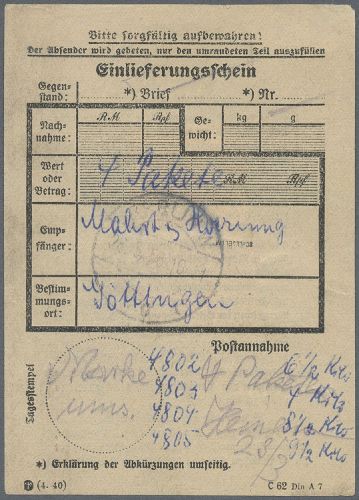 Bitte sorgfältig aufbewahren!
Der Absender wird gebeten, nur den umrandeten Teil auszufüllen
Einlieferungsschein
Gegenstand: *) Brief *) Nr.
Nachnahme: RM Rpf Gewicht: kg g
Wert oder Betrag: 4 Pakete RM Rpf
Empfänger:
Bestimmungsort: Göttingen
Postannahme
Tagesstempel
Marke 4802 4 Pakete 6 1/2 Kilo
ums. 4803 4 Kilo
4804 8 1/2 Kilo
4805 9 1/2 Kilo
*) Erklärung der Abkürzungen umseitig.
(4. 40) C 62 Din A 7